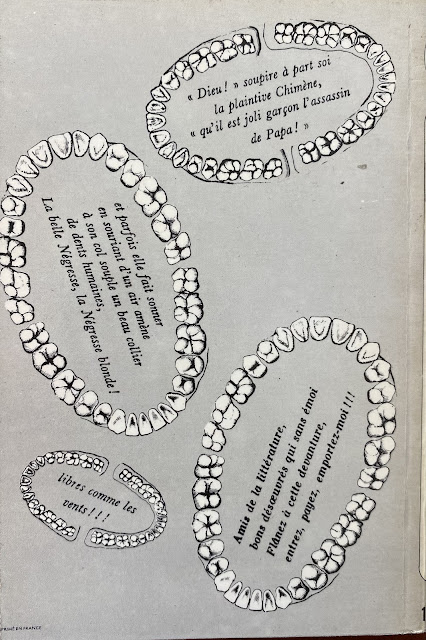 « Dieu ! » soupire à part soi
la plaintive Chimène,
« qu'il est joli garçon l'assassin
de Papa ! »
et parfois elle fait sonner
en souriant d'un air amène
à son col souple un beau collier
de dents humaines,
La belle Négresse, la Négresse blonde !
Amis de la littérature,
bons désœuvrés qui sans émoi
Flânez à cette devanture,
entrez, payez, emportez-moi !!!
libres comme les
vents !!!
EN FRANCE
1